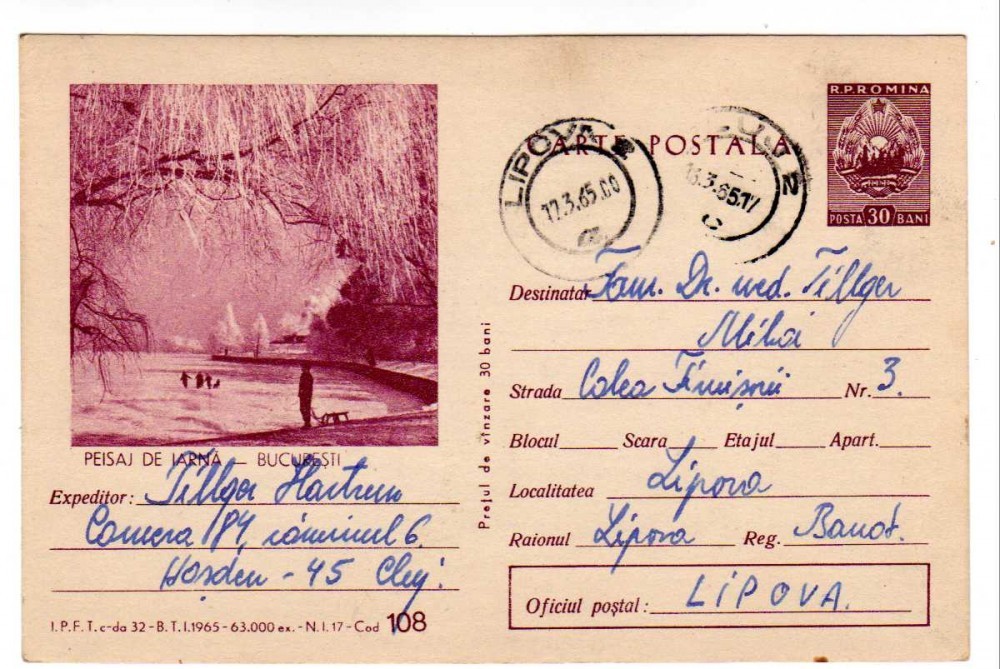 R.P.ROMINA
CARTE POSTALA
POSTA 30 BANI
LIPOVA 2
17.3.65.00
CLUJ 2
16.3.65.17
c
PEISAJ DE IARNĂ — BUCUREȘTI
Destinatar Fam. Dr. med. Tillger
Mihai
Strada Calea Timișorii Nr. 3.
Blocul Scara Etajul Apart.
Localitatea Lipova
Raionul Lipova Reg. Banat.
Oficiul poștal: LIPOVA.
Prețul de vînzare 30 bani
Expeditor: Tillger
Camera 184, căminul 6.
Hașdeu - 45 Cluj.
I.P.F.T. c-da 32 - B.T.I.1965 - 63.000 ex. - N.I.17 - Cod 108